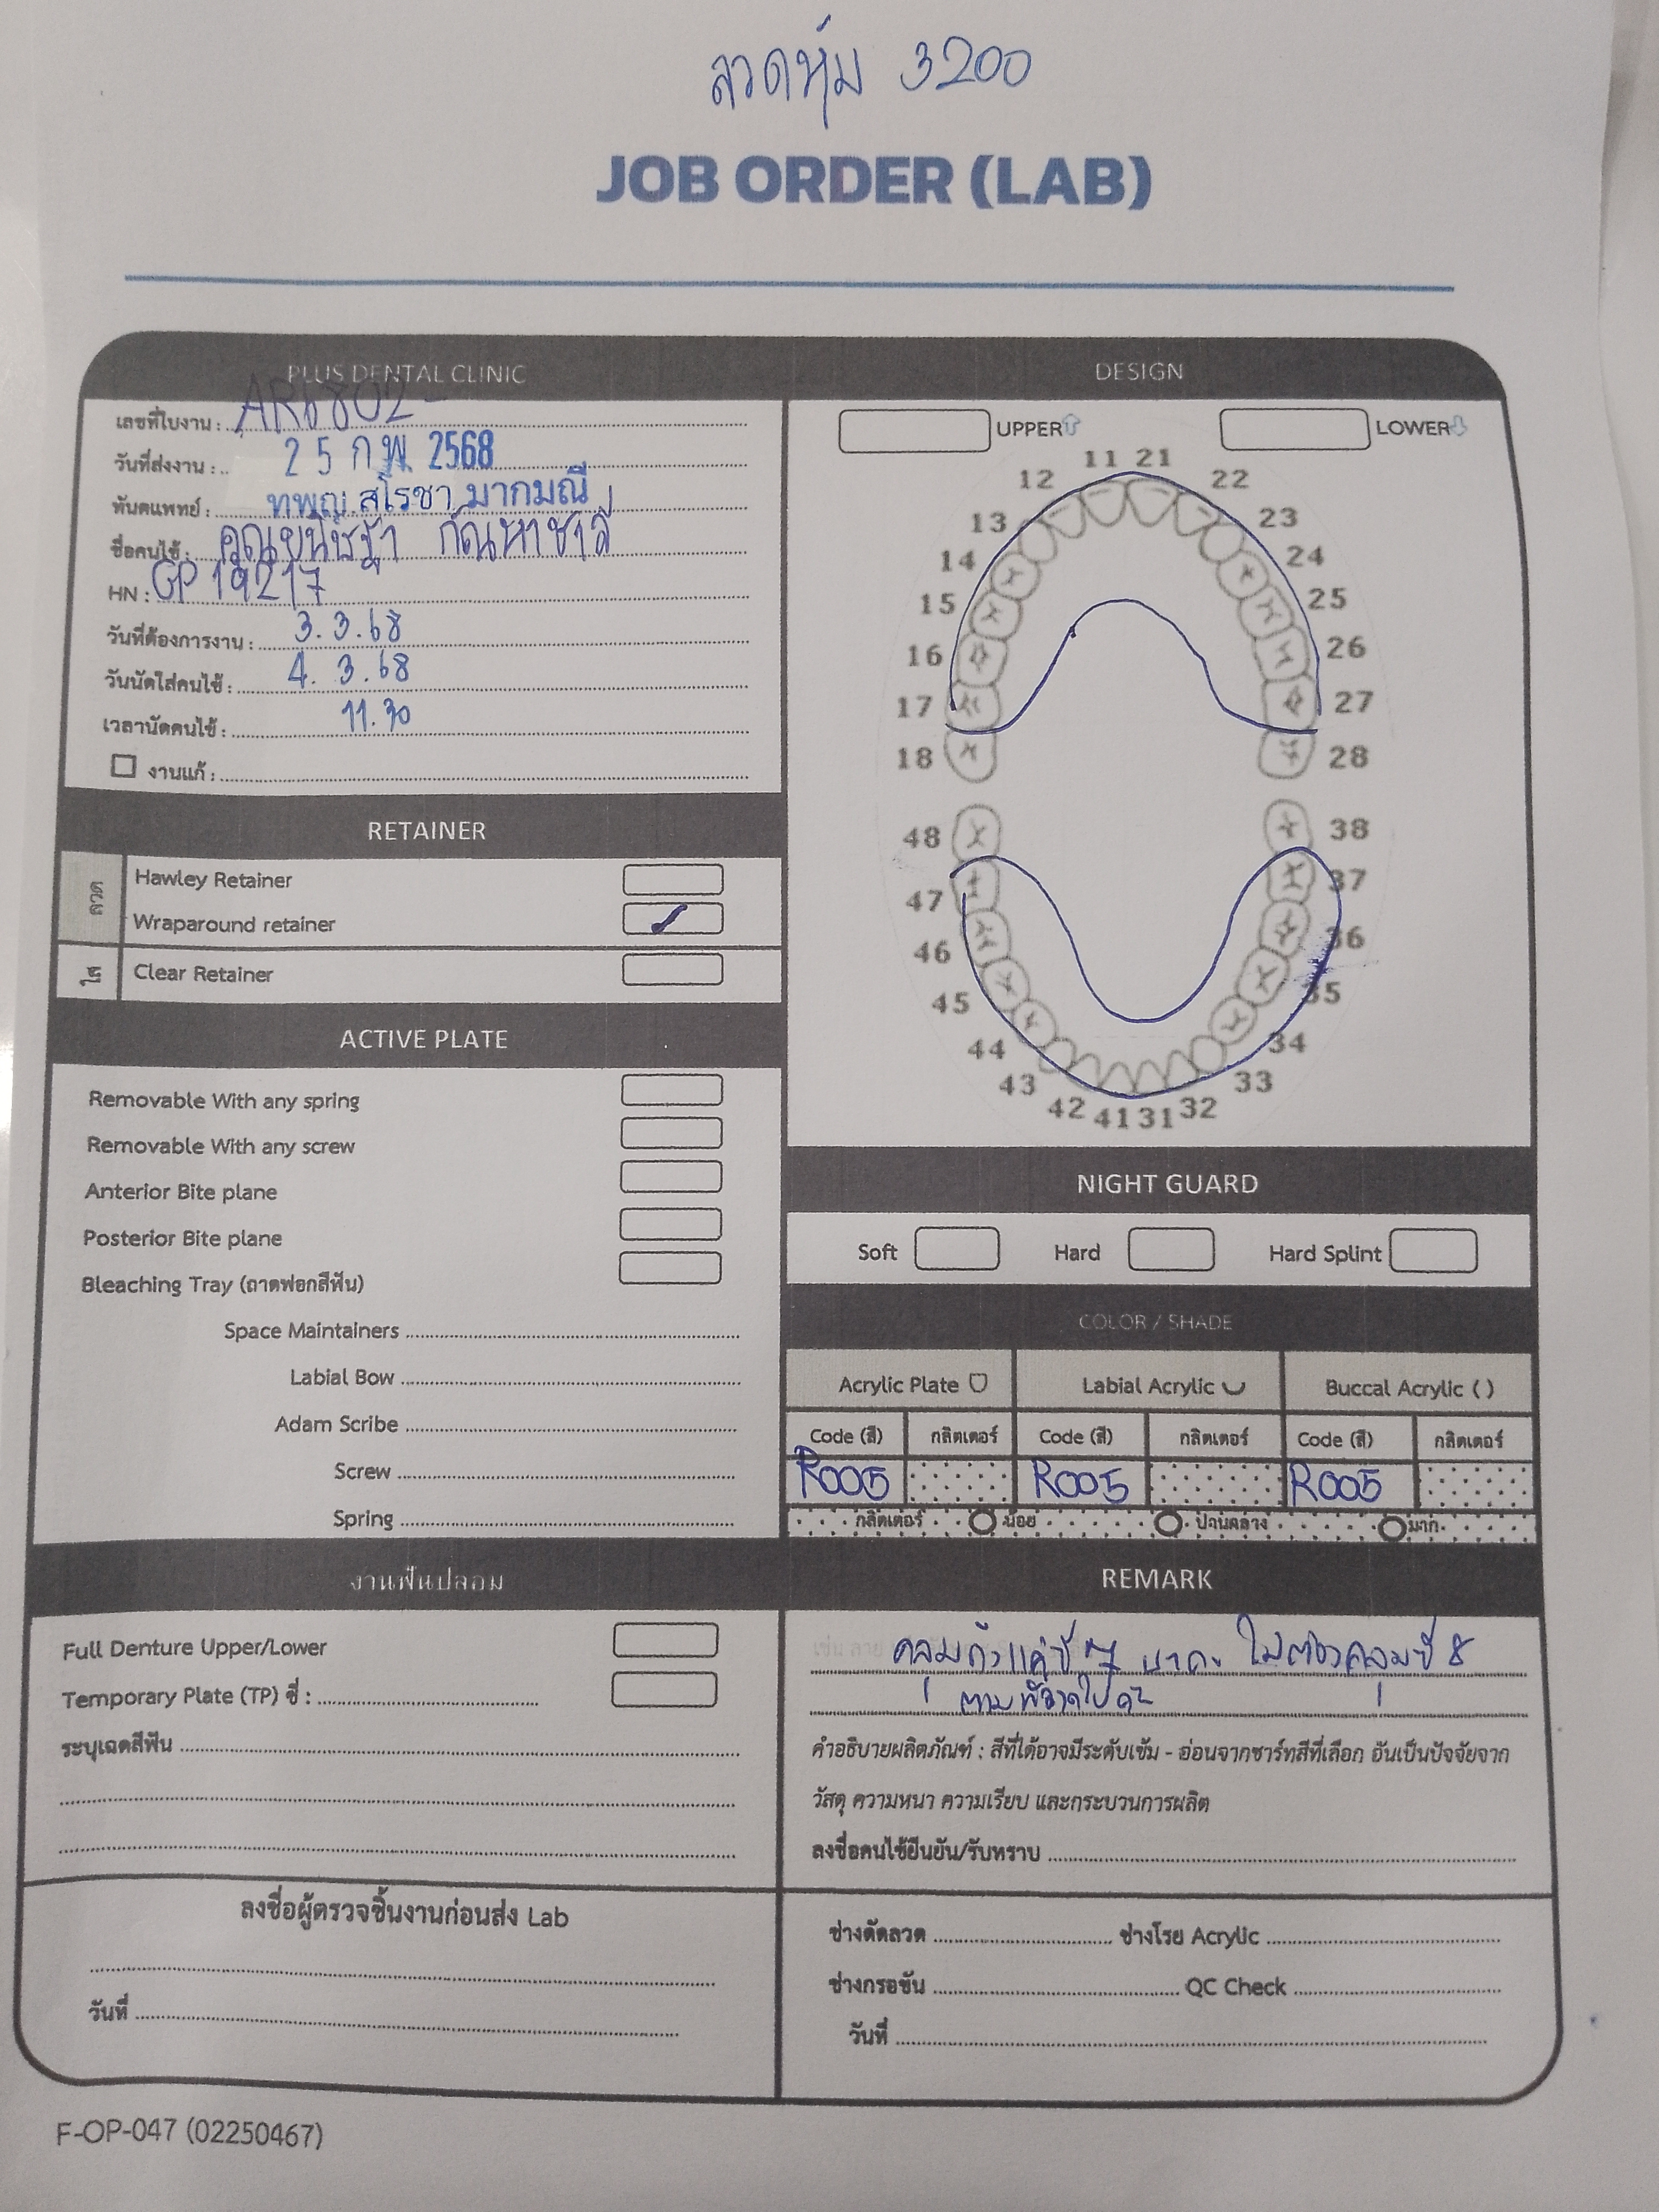 ลวดหุ้ม 3200
JOB ORDER (LAB)
PLUS DENTAL CLINIC
เลขที่ใบงาน : AR6802-
วันที่ส่งงาน : 25 ก.พ. 2568
ทันตแพทย์ : ทพญ.สโรชา มากมณี
ชื่อคนไข้ : คุณขนิษฐา กัณหาชาลี
HN : GP 19217
วันที่ต้องการงาน : 3.3.68
วันนัดใส่คนไข้ : 4.3.68
เวลานัดคนไข้ : 11.30
งานแก้ :
DESIGN
UPPER LOWER
11 21
12 22
13 23
14 24
15 25
16 26
17 27
18 28
48 38
47 37
46 36
45 35
44 34
43 33
42 41 31 32
RETAINER
ลวด
Hawley Retainer
Wraparound retainer ✓
ใส
Clear Retainer
ACTIVE PLATE
Removable With any spring
Removable With any screw
Anterior Bite plane
Posterior Bite plane
Bleaching Tray (ถาดฟอกสีฟัน)
Space Maintainers
Labial Bow
Adam Scribe
Screw
Spring
NIGHT GUARD
Soft Hard Hard Splint
COLOR / SHADE
Acrylic Plate Labial Acrylic Buccal Acrylic ( )
Code (สี) กลิตเตอร์ Code (สี) กลิตเตอร์ Code (สี) กลิตเตอร์
R005 R005 R005
กลิตเตอร์ น้อย ปานกลาง มาก
งานฟันปลอม
Full Denture Upper/Lower
Temporary Plate (TP) ซี่ :
ระบุเฉดสีฟัน
REMARK
คลุมถึงแค่ซี่ 7 นะคะ ไม่ต้องคลุมซี่ 8
ตามที่วาดไปค่ะ
คำอธิบายผลิตภัณฑ์ : สีที่ได้อาจมีระดับเข้ม - อ่อนจากชาร์ทสีที่เลือก อันเป็นปัจจัยจาก
วัสดุ ความหนา ความเรียบ และกระบวนการผลิต
ลงชื่อคนไข้ยืนยัน/รับทราบ
ลงชื่อผู้ตรวจชิ้นงานก่อนส่ง Lab
วันที่
ช่างดัดลวด ช่างโรย Acrylic
ช่างกรอขัน QC Check
วันที่
F-OP-047 (02250467)